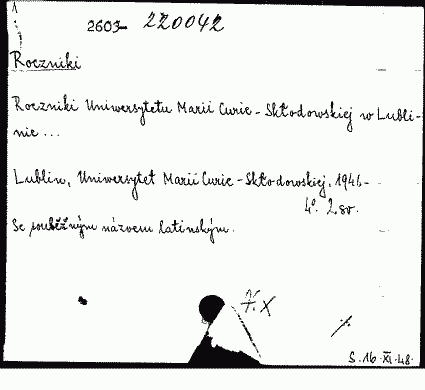 1
2603- 220042
Roczniki
Roczniki Uniwersytetu Marii Curie-Skłodowskiej w Lubli-
nie ...
Lublin, Uniwersytet Marii Curie-Skłodowskiej, 1946-
4°. 2 sv.
Se souběžným názvem latinským.
X
S. 16.XI.48.